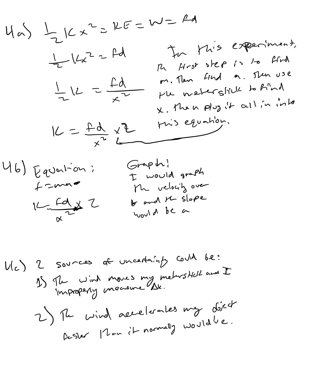 4a) ½Kx² = KE = W = Fd
½Kx² = fd
½K = fd/x²
K = fd/x² x2
In this experiment,
the first step is to find
m. Then find a. Then use
the meterstick to find
x. Then plug it all in into
this equation.
4b) Equation:
f=ma
K = fd/x² x 2
Graph:
I would graph
the velocity over
t and the slope
would be a
4c) 2 sources of uncertainty could be:
1) The wind moves my meterstick and I
improperly measure Δx.
2) The wind accelerates my object
faster than it normally would be.